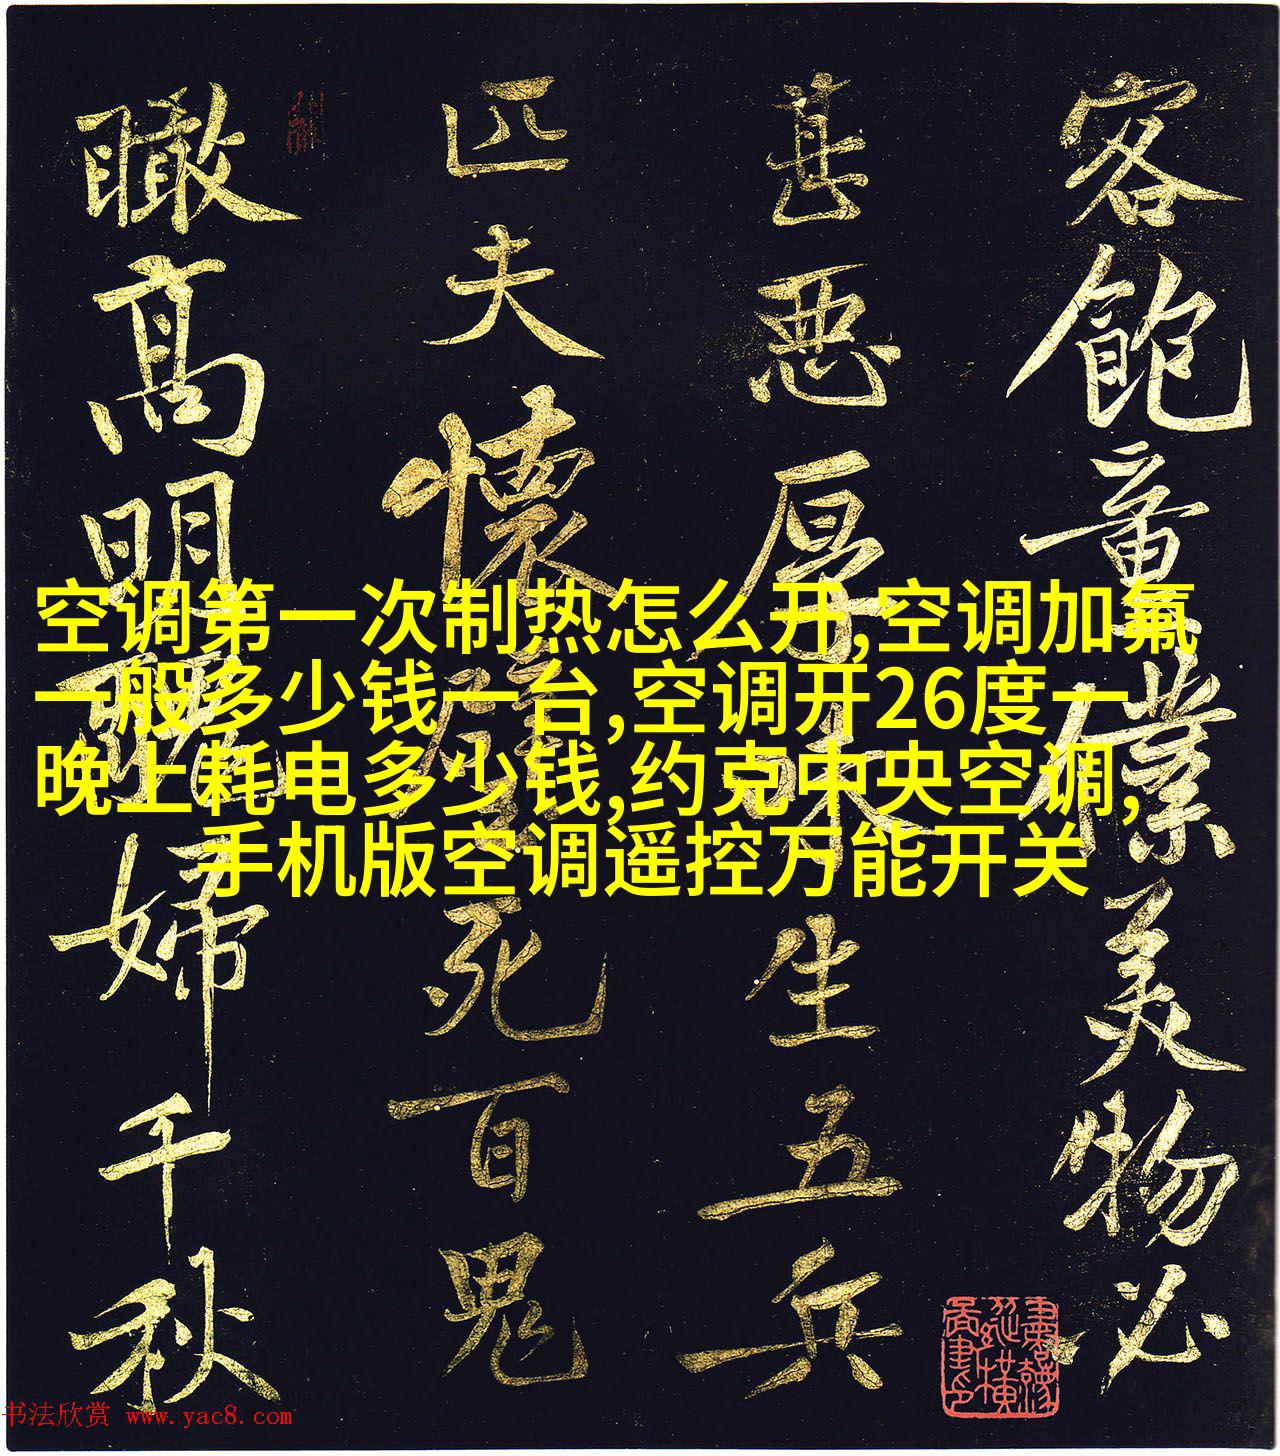 客飽童僕美物必
甚惡厚味生五兵
匹夫懷璧死百鬼
瞰高明醜婦千秋
空调第一次制热怎么开,空调加氟
一般多少钱一台,空调开26度一
晚上耗电多少钱,约克中央空调,
手机版空调遥控万能开关
书法欣赏 www.yac8.com